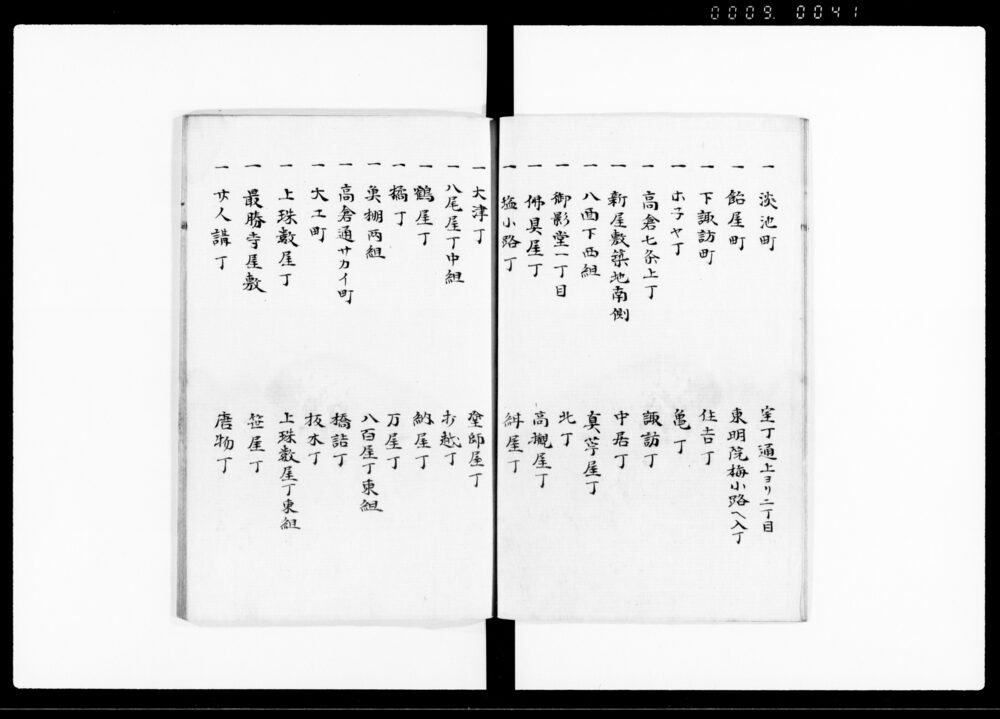 0009 0041
一 淡池町 室丁通上ヨリ二丁目
一 飴屋町 東明院梅小路へ入丁
一 下諏訪町 住吉丁
一 ホ子ヤ丁 亀丁
一 高倉七条上丁 諏訪丁
一 新屋敷築地南側 中居丁
一 八西下西組 真苧屋丁
一 御影堂一丁目 北丁
一 佛具屋丁 高槻屋丁
一 塩小路丁 紺屋丁
一 大津丁 塗師屋丁
一 八尾屋丁中組 お越丁
一 鶴屋丁 納屋丁
一 橘丁 万屋丁
一 魚棚両組 八百屋丁東組
一 高倉通サカイ町 橋詰丁
一 大工町 抜木丁
一 上珠数屋丁 上珠数屋丁東組
一 最勝寺屋敷 笹屋丁
一 廿人講丁 唐物丁